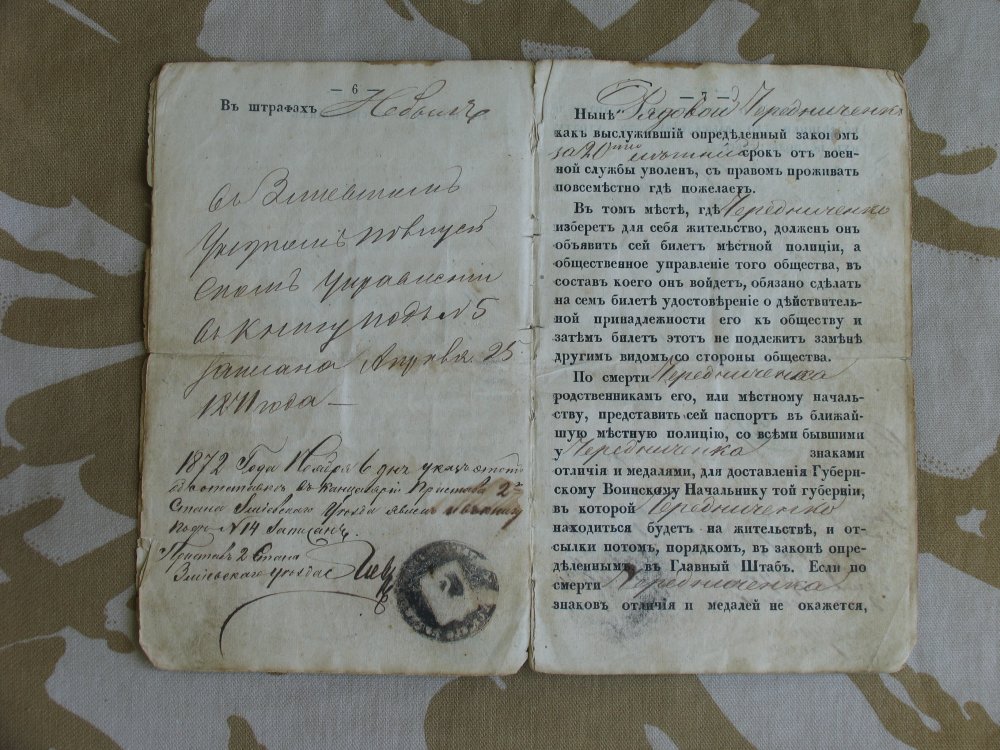 — 6 —
Въ штрафахъ Не былъ
Въ Зміевскомъ
Уѣздномъ
Управленіи
въ книгу подъ №5
записано Апрѣля 25
1871 года —
1872 Года Ноября 6 дня указъ этотъ
объ отставкѣ въ Канцеляріи Пристава 2го
Стана Зміевскаго Уѣзда явленъ и въ книгу
подъ №14 записанъ.
Приставъ 2 Стана
Зміевскаго уѣзда
— 7 —
Нынѣ Рядовой Чередниченко
какъ выслужившій опредѣленный закономъ
за 20 лѣтній срокъ отъ воен-
ной службы уволенъ, съ правомъ проживать
повсемѣстно гдѣ пожелаетъ.
Въ томъ мѣстѣ, гдѣ Чередниченко
изберетъ для себя жительство, долженъ онъ
объявить сей билетъ мѣстной полиціи, а
общественное управленіе того общества, въ
составъ коего онъ войдетъ, обязано сдѣлать
на семъ билетѣ удостовѣреніе о дѣйствитель-
ной принадлежности его къ обществу и
затѣмъ билетъ этотъ не подлежитъ замѣнѣ
другимъ видомъ со стороны общества.
По смерти Чередниченка
родственникамъ его, или мѣстному началь-
ству, представить сей паспортъ въ ближай-
шую мѣстную полицію, со всѣми бывшими
у Чередниченка знаками
отличія и медалями, для доставленія Губерн-
скому Воинскому Начальнику той губерніи,
въ которой Чередниченко
находиться будетъ на жительствѣ, и от-
сылки потомъ, порядкомъ, въ законѣ опре-
дѣленнымъ, въ Главный Штабъ. Если по
смерти Чередниченка
знаковъ отличія и медалей не окажется,